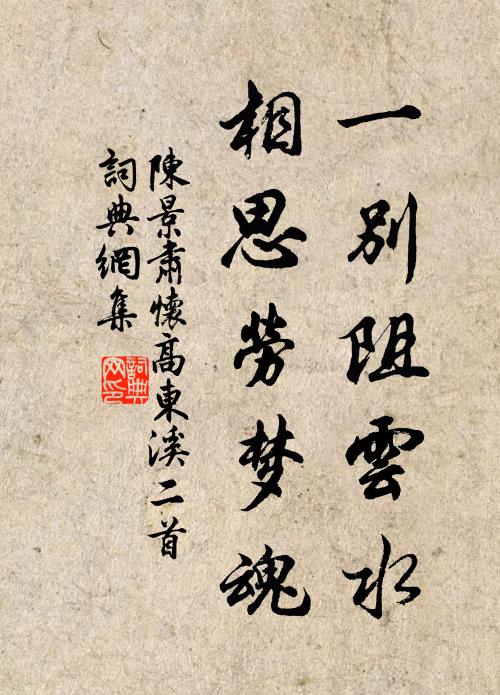 一别阻雲水
相思劳梦魂
陳景肅懷高東溪二首
詞典網集
詞典网印